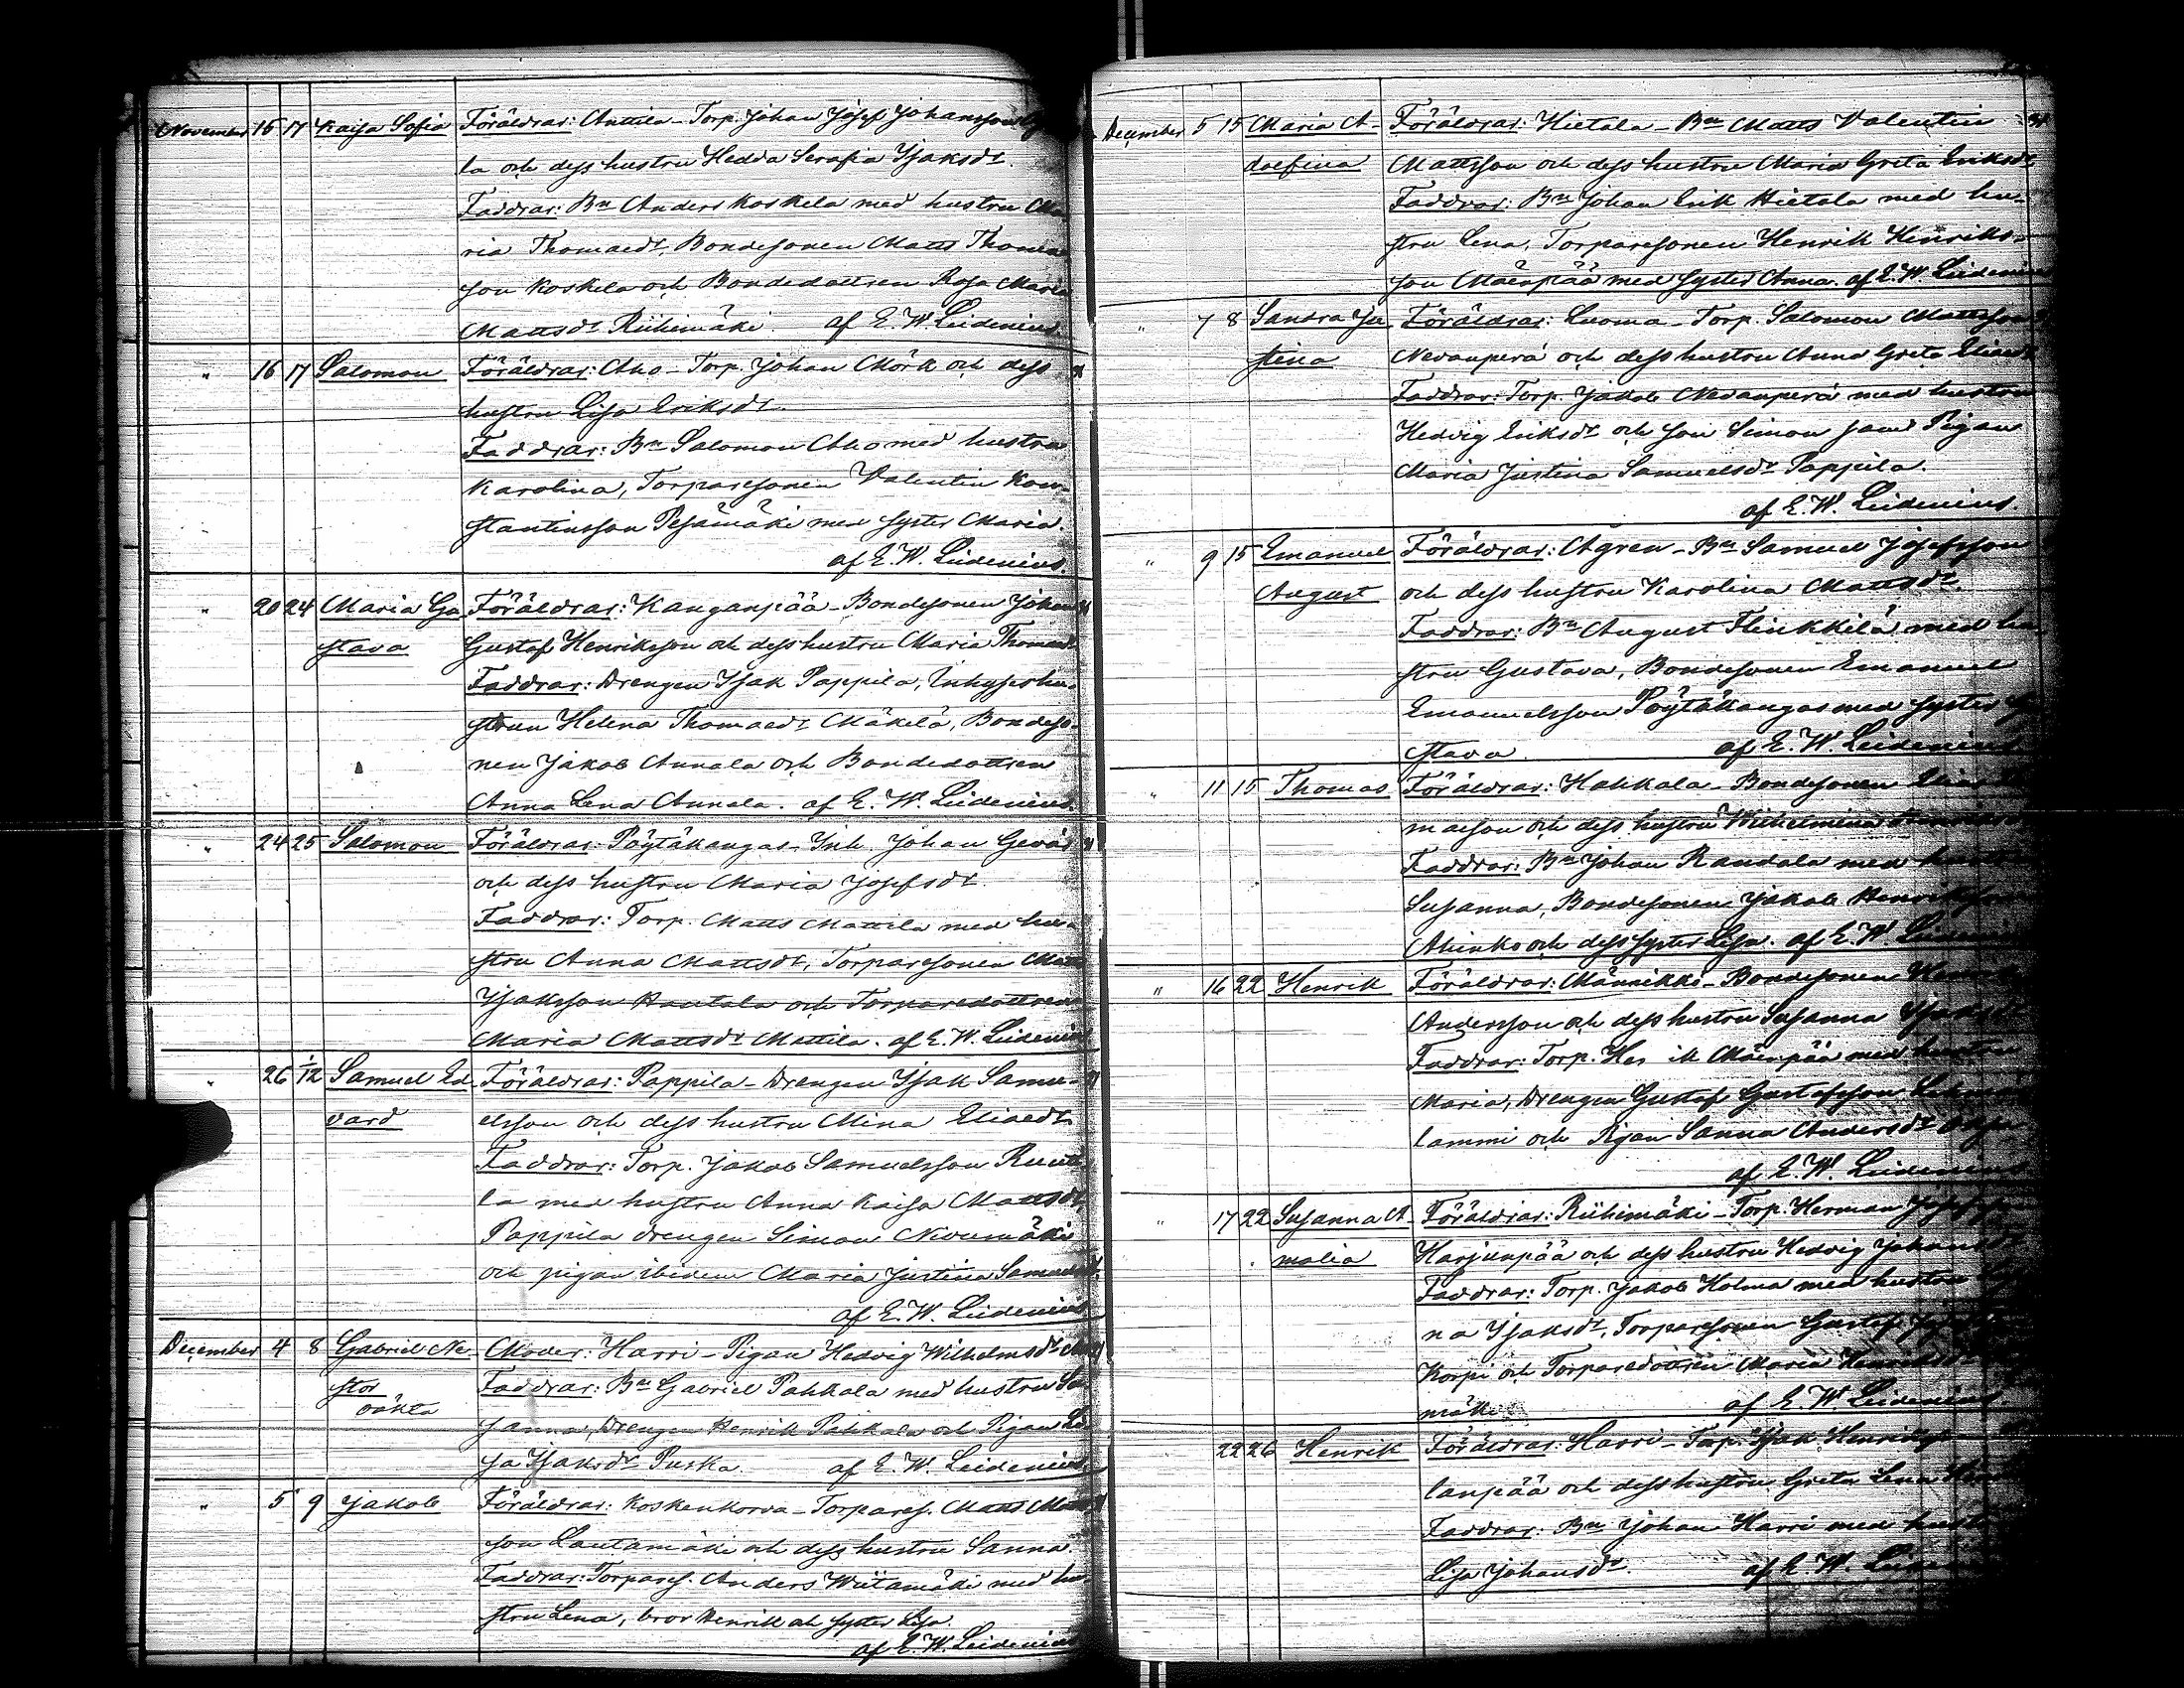 November 15 17 Kaisa Sofia Föräldrar: Anttila - Torp. Johan Josef Johansson
la och dess hustru Hedda Serafia Isaksdr.
Faddrar: Bn Anders Koskela med hustru Ma-
ria Thomaedr, Bondesonen Matts Thomas
son Koskela och Bondedottren Rosa Maria
Mattsdr Riihimäki. af E. W. Lidenius.
" 16 17 Salomon Föräldrar: Aho - Torp. Johan Mörk och dess
hustru Lisa Eriksdr.
Faddrar: Bn Salomon Aho med hustru
Karolina, Torparesonen Valentin Kon-
stantinsson Pesämäki med syster Maria.
af E. W. Lidenius.
" 20 24 Maria Gu- Föräldrar: Kanganpää - Bondesonen Johan
stava Gustaf Henriksson och dess hustru Maria Thomaedr
Faddrar: Drengen Isak Pappila, Inhyseshu-
strun Helena Thomaedr Mäkelä, Bondeso-
nen Jakob Annala och Bondedottren
Anna Lena Annala. af E. W. Lidenius.
" 24 25 Salomon Föräldrar: Pöytäkangas - Inh. Johan Gevär
och dess hustru Maria Josefsdr.
Faddrar: Torp. Matts Mattila med hu-
stru Anna Mattsdr, Torparesonen Matts
Isaksson Hautala och Torparedottren
Maria Mattsdr Mattila. af E. W. Lidenius
" 26 1/12 Samuel Ed- Föräldrar: Pappila - Drengen Isak Samu-
vard elsson och dess hustru Mina Eliaedr.
Faddrar: Torp. Jakob Samuelsson Ruut-
la med hustru Anna Kaisa Mattsdr,
Pappila drengen Simon Nivumäki
och pigan ibidem Maria Justina Samuelsdr.
af E. W. Lidenius
December 4 8 Gabriel Ne- Moder: Harri - Pigan Hedvig Wilhelmsdr
stor Faddrar: Bn Gabriel Pahkala med hustru Su-
oäkta
sanna, Drengen Henrik Pahkala och Pigan Li-
sa Isaksdr Puska. af E. W. Lidenius
" 5 9 Jakob Föräldrar: Koskenkorva - Torpares. Matts Matts
son Lautamäki och dess hustru Sanna.
Faddrar: Torpares. Anders Wiitamäki med hu
stru Lena, bror Henrik och syster Lisa.
af E. W. Lidenius
December 5 15 Maria A- Föräldrar: Hietala - Bn Matts Valentin
dolfina Mattsson och dess hustru Maria Greta Eriksdr
Faddrar: Bn Johan Erik Hietala med hu-
stru Lena, Torparesonen Henrik Henriks-
son Mäenpää med syster Anna. af E. W. Lidenius
" 7 8 Sandra Ju- Föräldrar: Luoma - Torp. Salomon Mattsson
stina Nevanperä och dess hustru Anna Greta Eliaedr
Faddrar: Torp. Jakob Nevanperä med hustru
Hedvig Eriksdr och son Simon samt Pigan
Maria Justina Samuelsdr Pappila.
af E. W. Lidenius.
" 9 15 Emanuel Föräldrar: Agren - Bn Samuel Josefsson
August och dess hustru Karolina Mattsdr.
Faddrar: Bn August Flinkkilä med hu-
stru Gustava, Bondesonen Emanuel
Emanuelsson Pöytäkangas med syster Gu
stava. af E. W. Lidenius
" 11 15 Thomas Föräldrar: Hahkala - Bondesonen Elias
maeson och dess hustru Wilhelmina
Faddrar: Bn Johan Randala med hustru
Susanna, Bondesonen Jakob Henriksson
Ahinko och dess syster Lisa. af E. W. Lidenius
" 16 22 Henrik Föräldrar: Männikkö - Bondesonen
Andersson och dess hustru Susanna Isaksdr
Faddrar: Torp. Hen ik Mäenpää med hustru
Maria, Drengen Gustaf Gustafsson
lammi och Pigan Sanna Andersdr
af E. W. Lidenius.
" 17 22 Susanna A- Föräldrar: Riihimäki - Torp. Herman Josefsson
malia Harjunpää och dess hustru Hedvig Johansdr
Faddrar: Torp. Jakob Holma med hustru
na Isaksdr, Torparesonen Gustaf
Korpi och Torparedottren Maria
mäki af E. W. Lidenius.
22 26 Henrik Föräldrar: Harri - Torp. Isak Henriksson
lanpää och dess hustru Greta Lena
Faddrar: Bn Johan Harri med hustru
Lisa Johansdr. af E. W. Lidenius